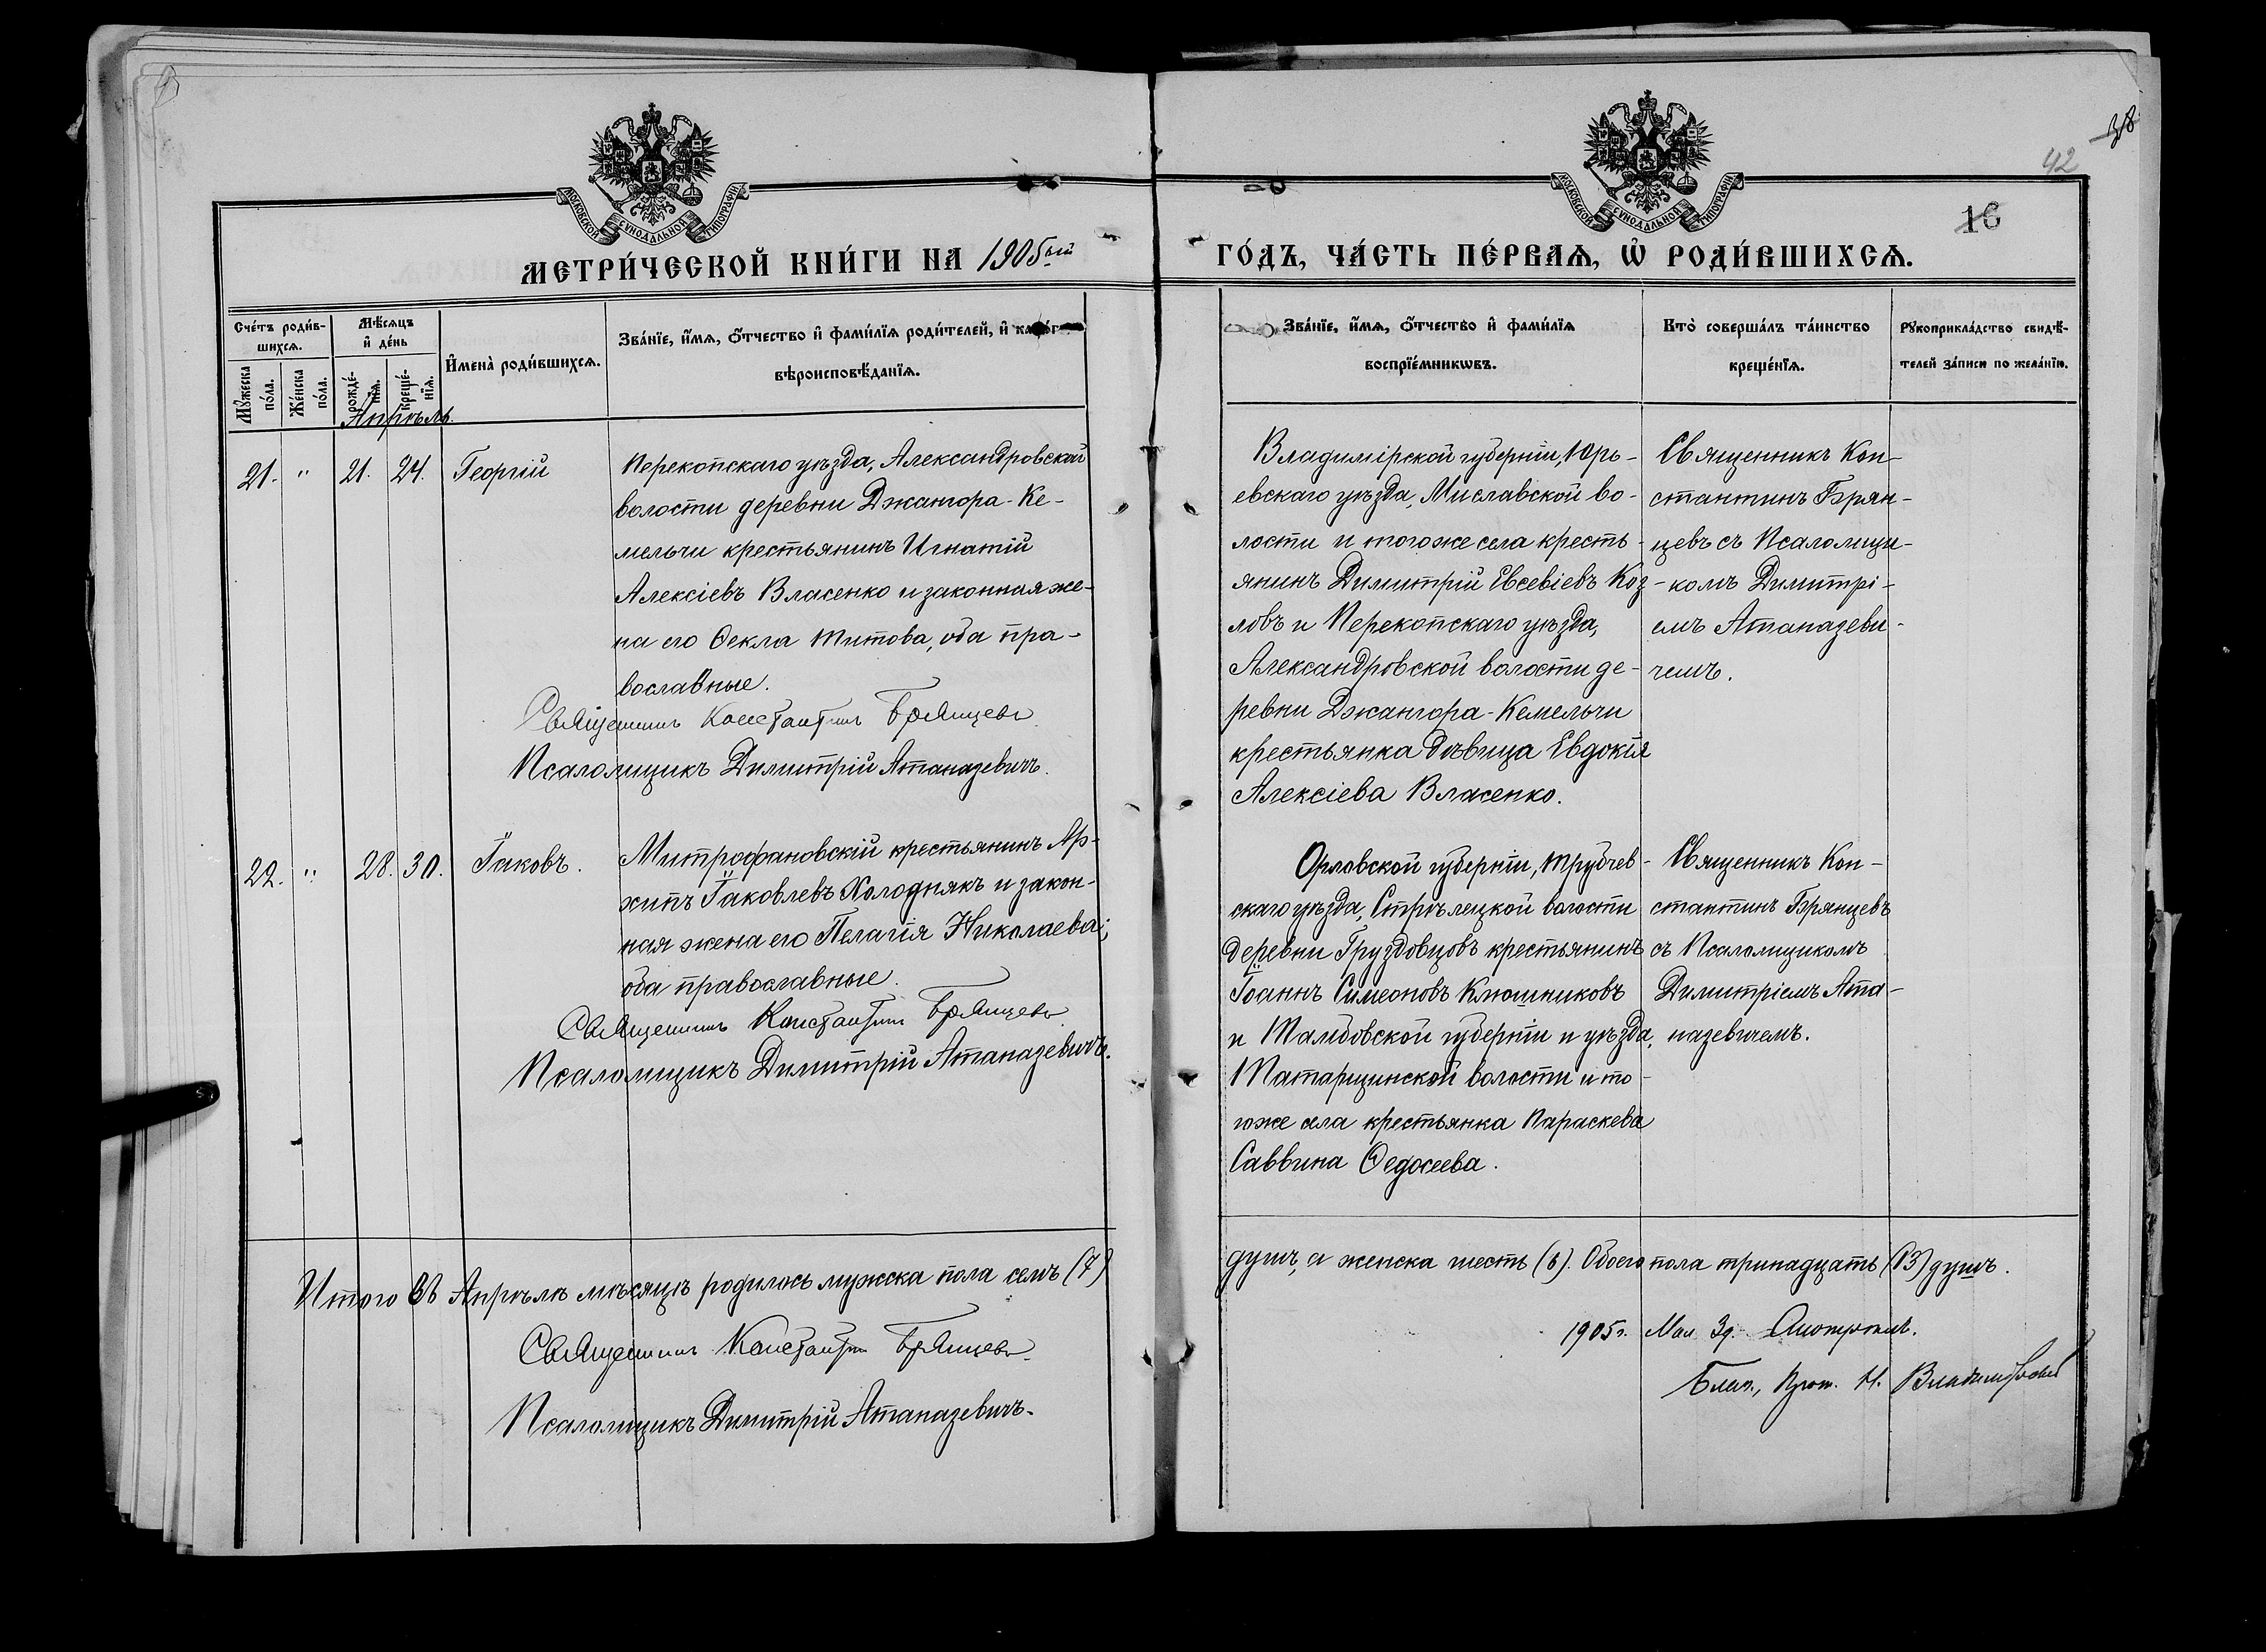 38
42
16
МОСКОВСКОЙ СѴНОДАЛЬНОЙ ТИПОГРАФІИ
МОСКОВСКОЙ СѴНОДАЛЬНОЙ ТИПОГРАФІИ
МЕТРИ́ЧЕСКОЙ КНИ́ГИ НА 1905ый
ГО́ДЪ, ЧА́СТЬ ПЕ́РВАѦ, Ѽ РОДИ́ВШИХСѦ.
Сче́тъ роди́в-
шихсѧ.
Мꙋ́жеска по́ла.
Же́нска по́ла.
Мѣ́сѧцъ
и҆ де́нь
рожде́-
нїѧ.
креще́-
нїѧ.
И҆мена̀ роди́вшихсѧ.
Зва́нїе, и҆́мѧ, ѻ҆́тчество и҆ фами́лїѧ роди́телей, и҆
вѣроисповѣ́данїѧ.
Зва́нїе, и҆́мѧ, ѻ҆́тчество и҆ фами́лїѧ
воспрїе́мникѡвъ.
Кто̀ соверша́лъ та́инство
креще́нїѧ.
Рꙋкоприкла́дство свидѣ́-
телей за́писи по жела́нїю.
Апрѣль.
21. " 21. 24. Георгій
Перекопскаго уѣзда, Александровской
волости деревни Джангора-Ке-
мельчи крестьянинъ Игнатій
Алексіевъ Власенко и законная же-
на его Ѳекла Титова, оба пра-
вославные.
Священникъ Константинъ Брянцевъ
Псаломщикъ Димитрій Атаназевичъ.
Владимірской губерніи, Юрь-
евскаго уѣзда, Миславской во-
лости и тогоже села кресть-
янинъ Димитрій Евсевіевъ Коз-
ловъ и Перекопскаго уѣзда,
Александровской волости де-
ревни Джангора-Кемельчи
крестьянка дѣвица Евдокія
Алексіева Власенко.
Священникъ Кон-
стантинъ Брян-
цевъ съ Псаломщи-
комъ Димитрі-
емъ Атаназеви-
чемъ.
22. " 28. 30. Іаковъ.
Митрофановскій крестьянинъ Ар-
хипъ Іаковлевъ Холоднякъ и закон-
ная жена его Пелагія Николаева;
оба православные.
Священникъ Константинъ Брянцевъ
Псаломщикъ Димитрій Атаназевичъ.
Орловской губерніи, Трубчев-
скаго уѣзда, Стрѣлецкой волости
деревни Груздовцовъ крестьянинъ
Іоаннъ Симеоновъ Клюшниковъ
и Тамбовской губерніи и уѣзда,
Татарщинской волости и то-
гоже села крестьянка Параскева
Саввина Ѳедосеева.
Священникъ Кон-
стантинъ Брянцевъ
съ Псаломщикомъ
Димитріемъ Ата-
назевичемъ.
Итого въ Апрѣлѣ мѣсяцѣ родилось мужска пола семь (7)
душъ, а женска шесть (6). Обоего пола тринадцать (13) душъ.
Священникъ Константинъ Брянцевъ
Псаломщикъ Димитрій Атаназевичъ.
1905 г. Мая 3 д. Смотрѣлъ.
Благ., Прот. Н. Владимірскій